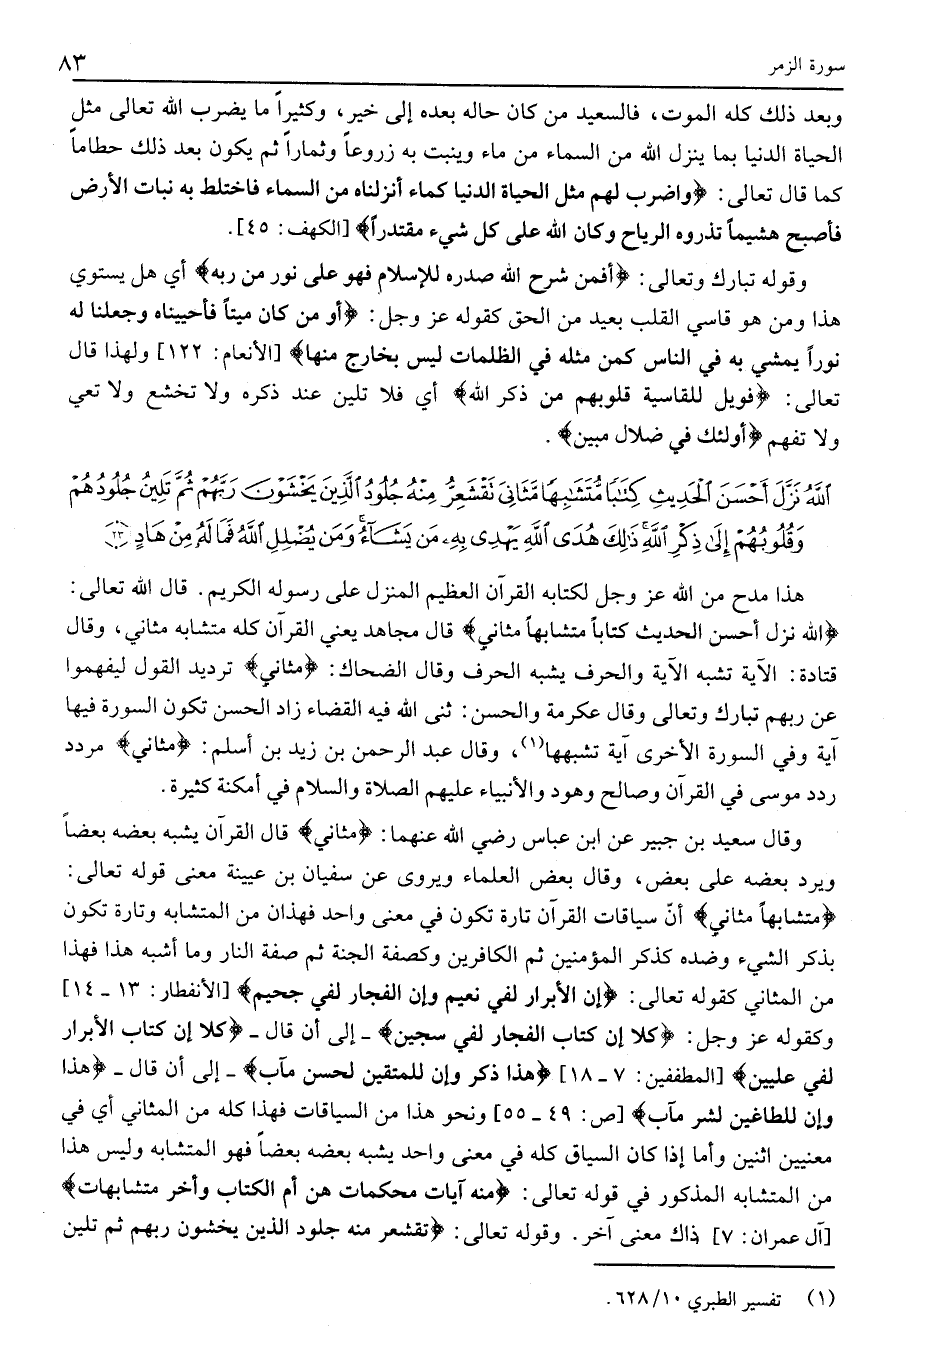 سورة الزمر ٨٣
وبعد ذلك كله الموت، فالسعيد من كان حاله بعده إلى خير، وكثيراً ما يضرب الله تعالى مثل
الحياة الدنيا بما ينزل الله من السماء من ماء وينبت به زروعاً وثماراً ثم يكون بعد ذلك حطاماً
كما قال تعالى: ﴿واضرب لهم مثل الحياة الدنيا كماء أنزلناه من السماء فاختلط به نبات الأرض
فأصبح هشيماً تذروه الرياح وكان الله على كل شيء مقتدراً﴾ [الكهف: ٤٥].
وقوله تبارك وتعالى: ﴿أفمن شرح الله صدره للإسلام فهو على نور من ربه﴾ أي هل يستوي
هذا ومن هو قاسي القلب بعيد من الحق كقوله عز وجل: ﴿أو من كان ميتاً فأحييناه وجعلنا له
نوراً يمشي به في الناس كمن مثله في الظلمات ليس بخارج منها﴾ [الأنعام: ١٢٢] ولهذا قال
تعالى: ﴿فويل للقاسية قلوبهم من ذكر الله﴾ أي فلا تلين عند ذكره ولا تخشع ولا تعي
ولا تفهم ﴿أولئك في ضلال مبين﴾.
ٱللَّهُ نَزَّلَ أَحْسَنَ ٱلْحَدِيثِ كِتَٰبًا مُّتَشَٰبِهًا مَّثَانِىَ تَقْشَعِرُّ مِنْهُ جُلُودُ ٱلَّذِينَ يَخْشَوْنَ رَبَّهُمْ ثُمَّ تَلِينُ جُلُودُهُمْ
وَقُلُوبُهُمْ إِلَىٰ ذِكْرِ ٱللَّهِ ۚ ذَٰلِكَ هُدَى ٱللَّهِ يَهْدِى بِهِۦ مَن يَشَآءُ ۚ وَمَن يُضْلِلِ ٱللَّهُ فَمَا لَهُۥ مِنْ هَادٍ ﴿٢٣﴾
هذا مدح من الله عز وجل لكتابه القرآن العظيم المنزل على رسوله الكريم. قال الله تعالى:
﴿الله نزل أحسن الحديث كتاباً متشابهاً مثاني﴾ قال مجاهد يعني القرآن كله متشابه مثاني، وقال
قتادة: الآية تشبه الآية والحرف يشبه الحرف وقال الضحاك: ﴿مثاني﴾ ترديد القول ليفهموا
عن ربهم تبارك وتعالى وقال عكرمة والحسن: ثنى الله فيه القضاء زاد الحسن تكون السورة فيها
آية وفي السورة الأخرى آية تشبهها(١)، وقال عبد الرحمن بن زيد بن أسلم: ﴿مثاني﴾ مردد
ردد موسى في القرآن وصالح وهود والأنبياء عليهم الصلاة والسلام في أمكنة كثيرة.
وقال سعيد بن جبير عن ابن عباس رضي الله عنهما: ﴿مثاني﴾ قال القرآن يشبه بعضه بعضاً
ويرد بعضه على بعض، وقال بعض العلماء ويروى عن سفيان بن عيينة معنى قوله تعالى:
﴿متشابهاً مثاني﴾ أنّ سياقات القرآن تارة تكون في معنى واحد فهذان من المتشابه وتارة تكون
بذكر الشيء وضده كذكر المؤمنين ثم الكافرين وكصفة الجنة ثم صفة النار وما أشبه هذا فهذا
من المثاني كقوله تعالى: ﴿إن الأبرار لفي نعيم وإن الفجار لفي جحيم﴾ [الأنفطار: ١٣ ـ ١٤]
وكقوله عز وجل: ﴿كلا إن كتاب الفجار لفي سجين﴾ ـ إلى أن قال ـ ﴿كلا إن كتاب الأبرار
لفي عليين﴾ [المطففين: ٧ ـ ١٨] ﴿هذا ذكر وإن للمتقين لحسن مآب﴾ ـ إلى أن قال ـ ﴿هذا
وإن للطاغين لشر مآب﴾ [ص: ٤٩ ـ ٥٥] ونحو هذا من السياقات فهذا كله من المثاني أي في
معنيين اثنين وأما إذا كان السياق كله في معنى واحد يشبه بعضه بعضاً فهو المتشابه وليس هذا
من المتشابه المذكور في قوله تعالى: ﴿منه آيات محكمات هن أم الكتاب وأخر متشابهات﴾
[آل عمران: ٧] ذاك معنى آخر. وقوله تعالى: ﴿تقشعر منه جلود الذين يخشون ربهم ثم تلين
(١) تفسير الطبري ١٠/ ٦٢٨.